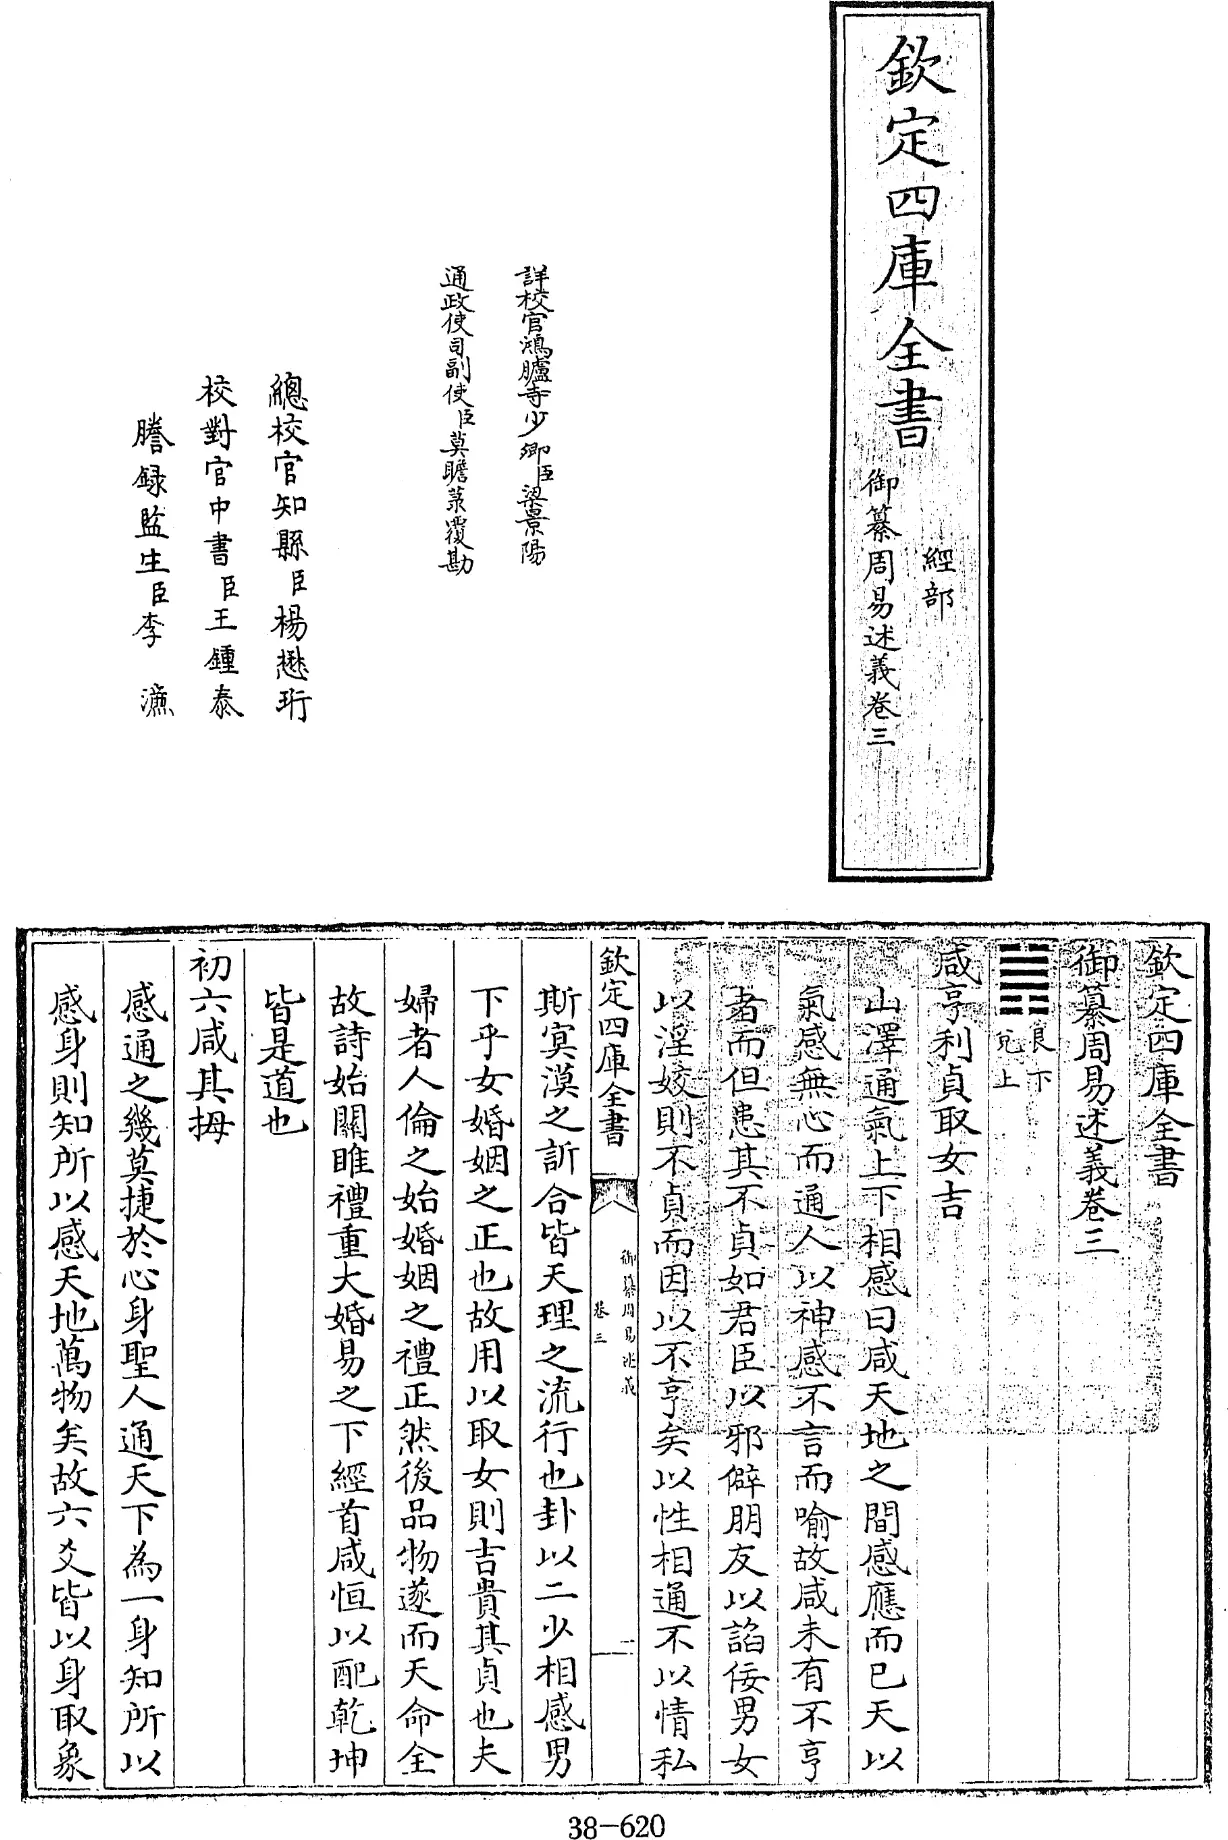 欽定四庫全書
經部
御纂周易述義卷三
詳校官鴻臚寺少卿臣梁景陽
通政使司副使臣莫瞻菉覆勘
總校官知縣臣楊懋珩
校對官中書臣王鍾泰
謄録監生臣李㶒
欽定四庫全書
御纂周易述義卷三
艮下
兊上
咸亨利貞取女吉
山澤通氣上下相感曰咸天地之間感應而已天以
氣感無心而通人以神感不言而喻故咸未有不亨
者而但患其不貞如君臣以邪僻朋友以諂佞男女
以淫姣則不貞而因以不亨矣以性相通不以情私
欽定四庫全書
御纂周易述義
卷三
一
斯寞漠之訢合皆天理之流行也卦以二少相感男
下乎女婚姻之正也故用以取女則吉貴其貞也夫
婦者人倫之始婚姻之禮正然後品物遂而天命全
故詩始關雎禮重大婚易之下經首咸恒以配乾坤
皆是道也
初六咸其拇
感通之幾莫捷於心身聖人通天下為一身知所以
感身則知所以感天地萬物矣故六爻皆以身取象
38-620